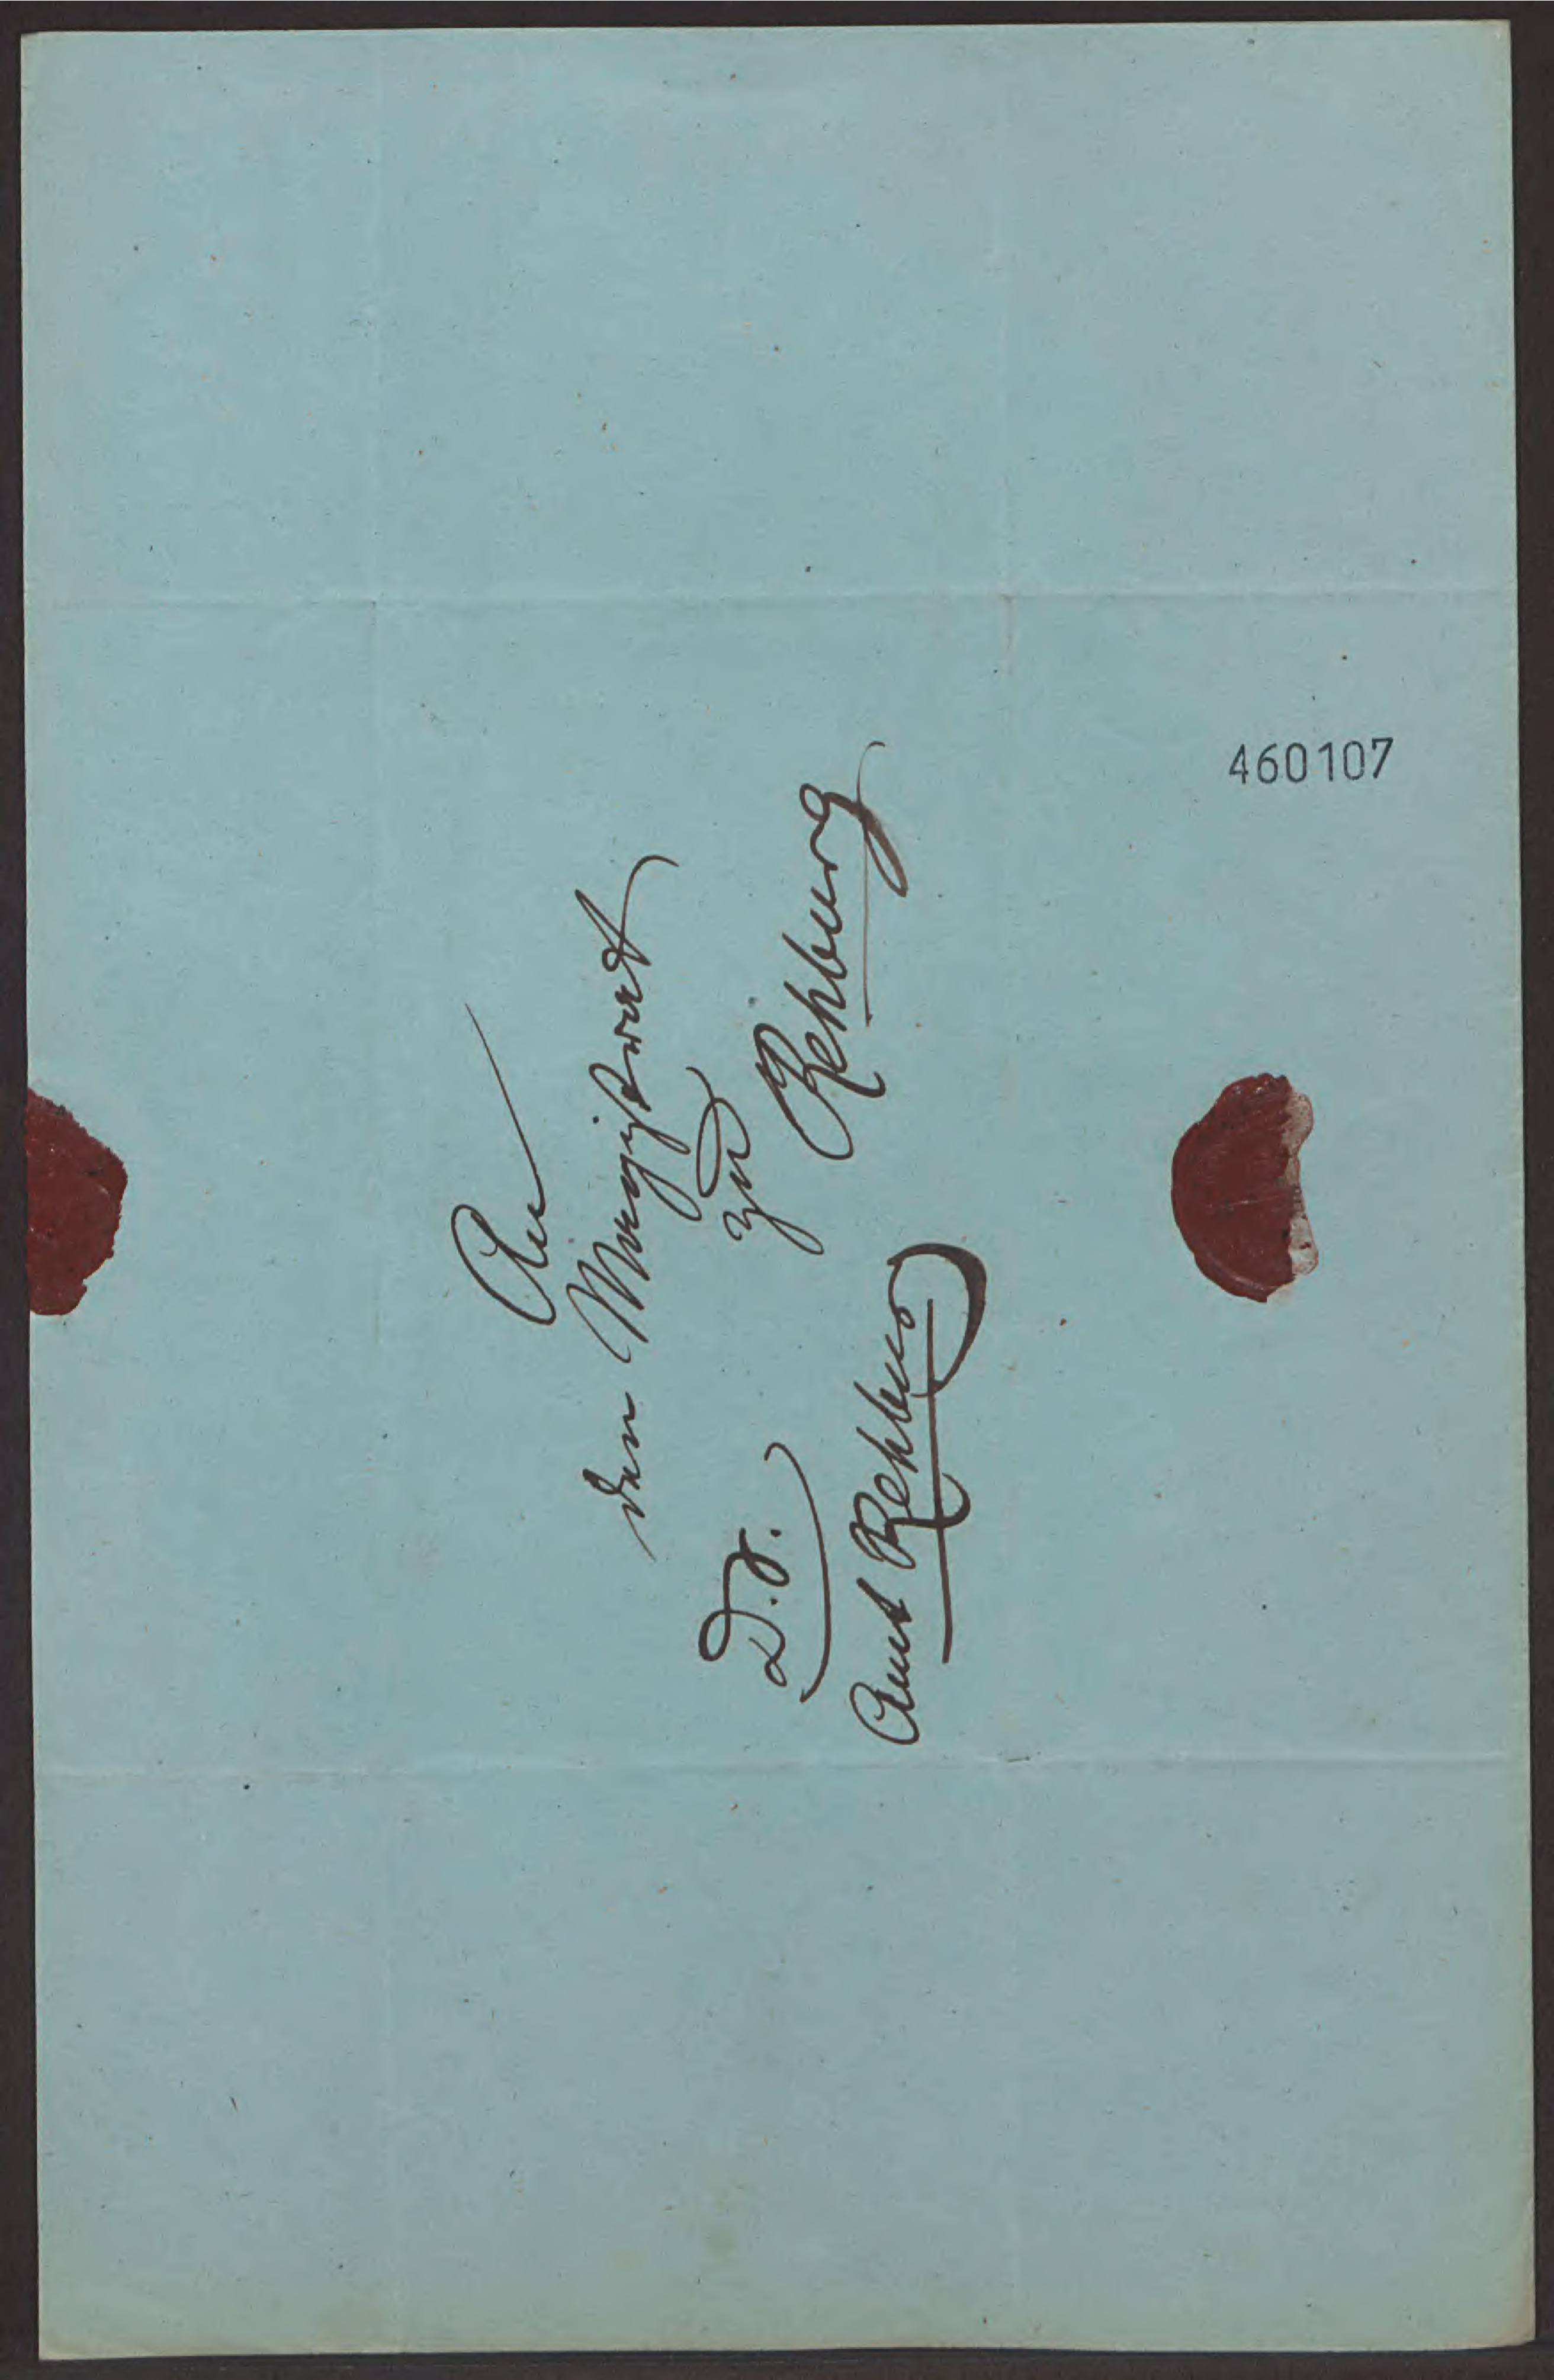 An
den Magistrat
zu
Rehburg
D. S.
Amt Rehburg
460107